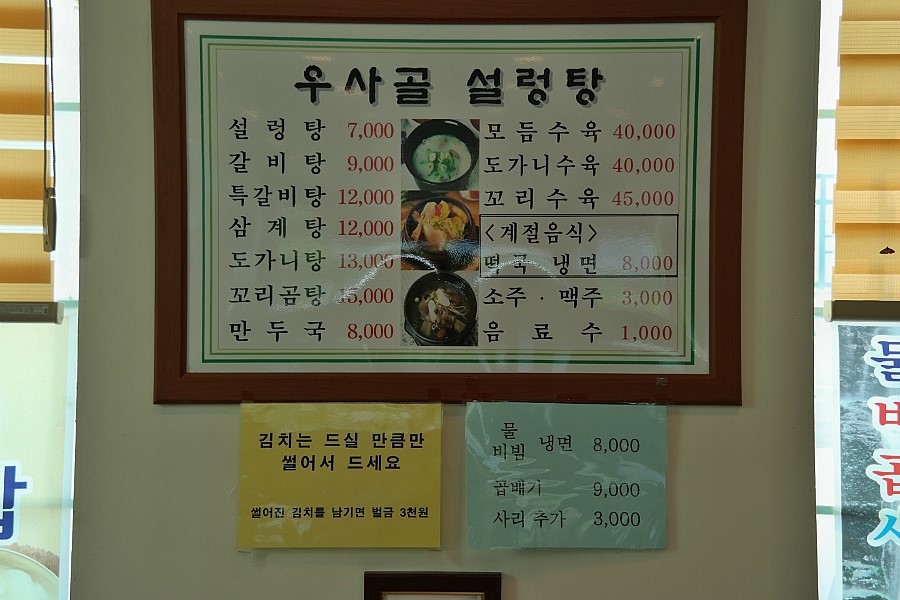 우사골 설렁탕
설렁탕 7,000
갈비탕 9,000
특갈비탕 12,000
삼계탕 12,000
도가니탕 13,000
꼬리곰탕 15,000
만두국 8,000
모듬수육 40,000
도가니수육 40,000
꼬리수육 45,000
<계절음식>
떡국 냉면 8,000
소주 · 맥주 3,000
음료수 1,000
김치는 드실 만큼만
썰어서 드세요
썰어진 김치를 남기면 벌금 3천원
물
비빔 냉면 8,000
곱배기 9,000
사리 추가 3,000
물